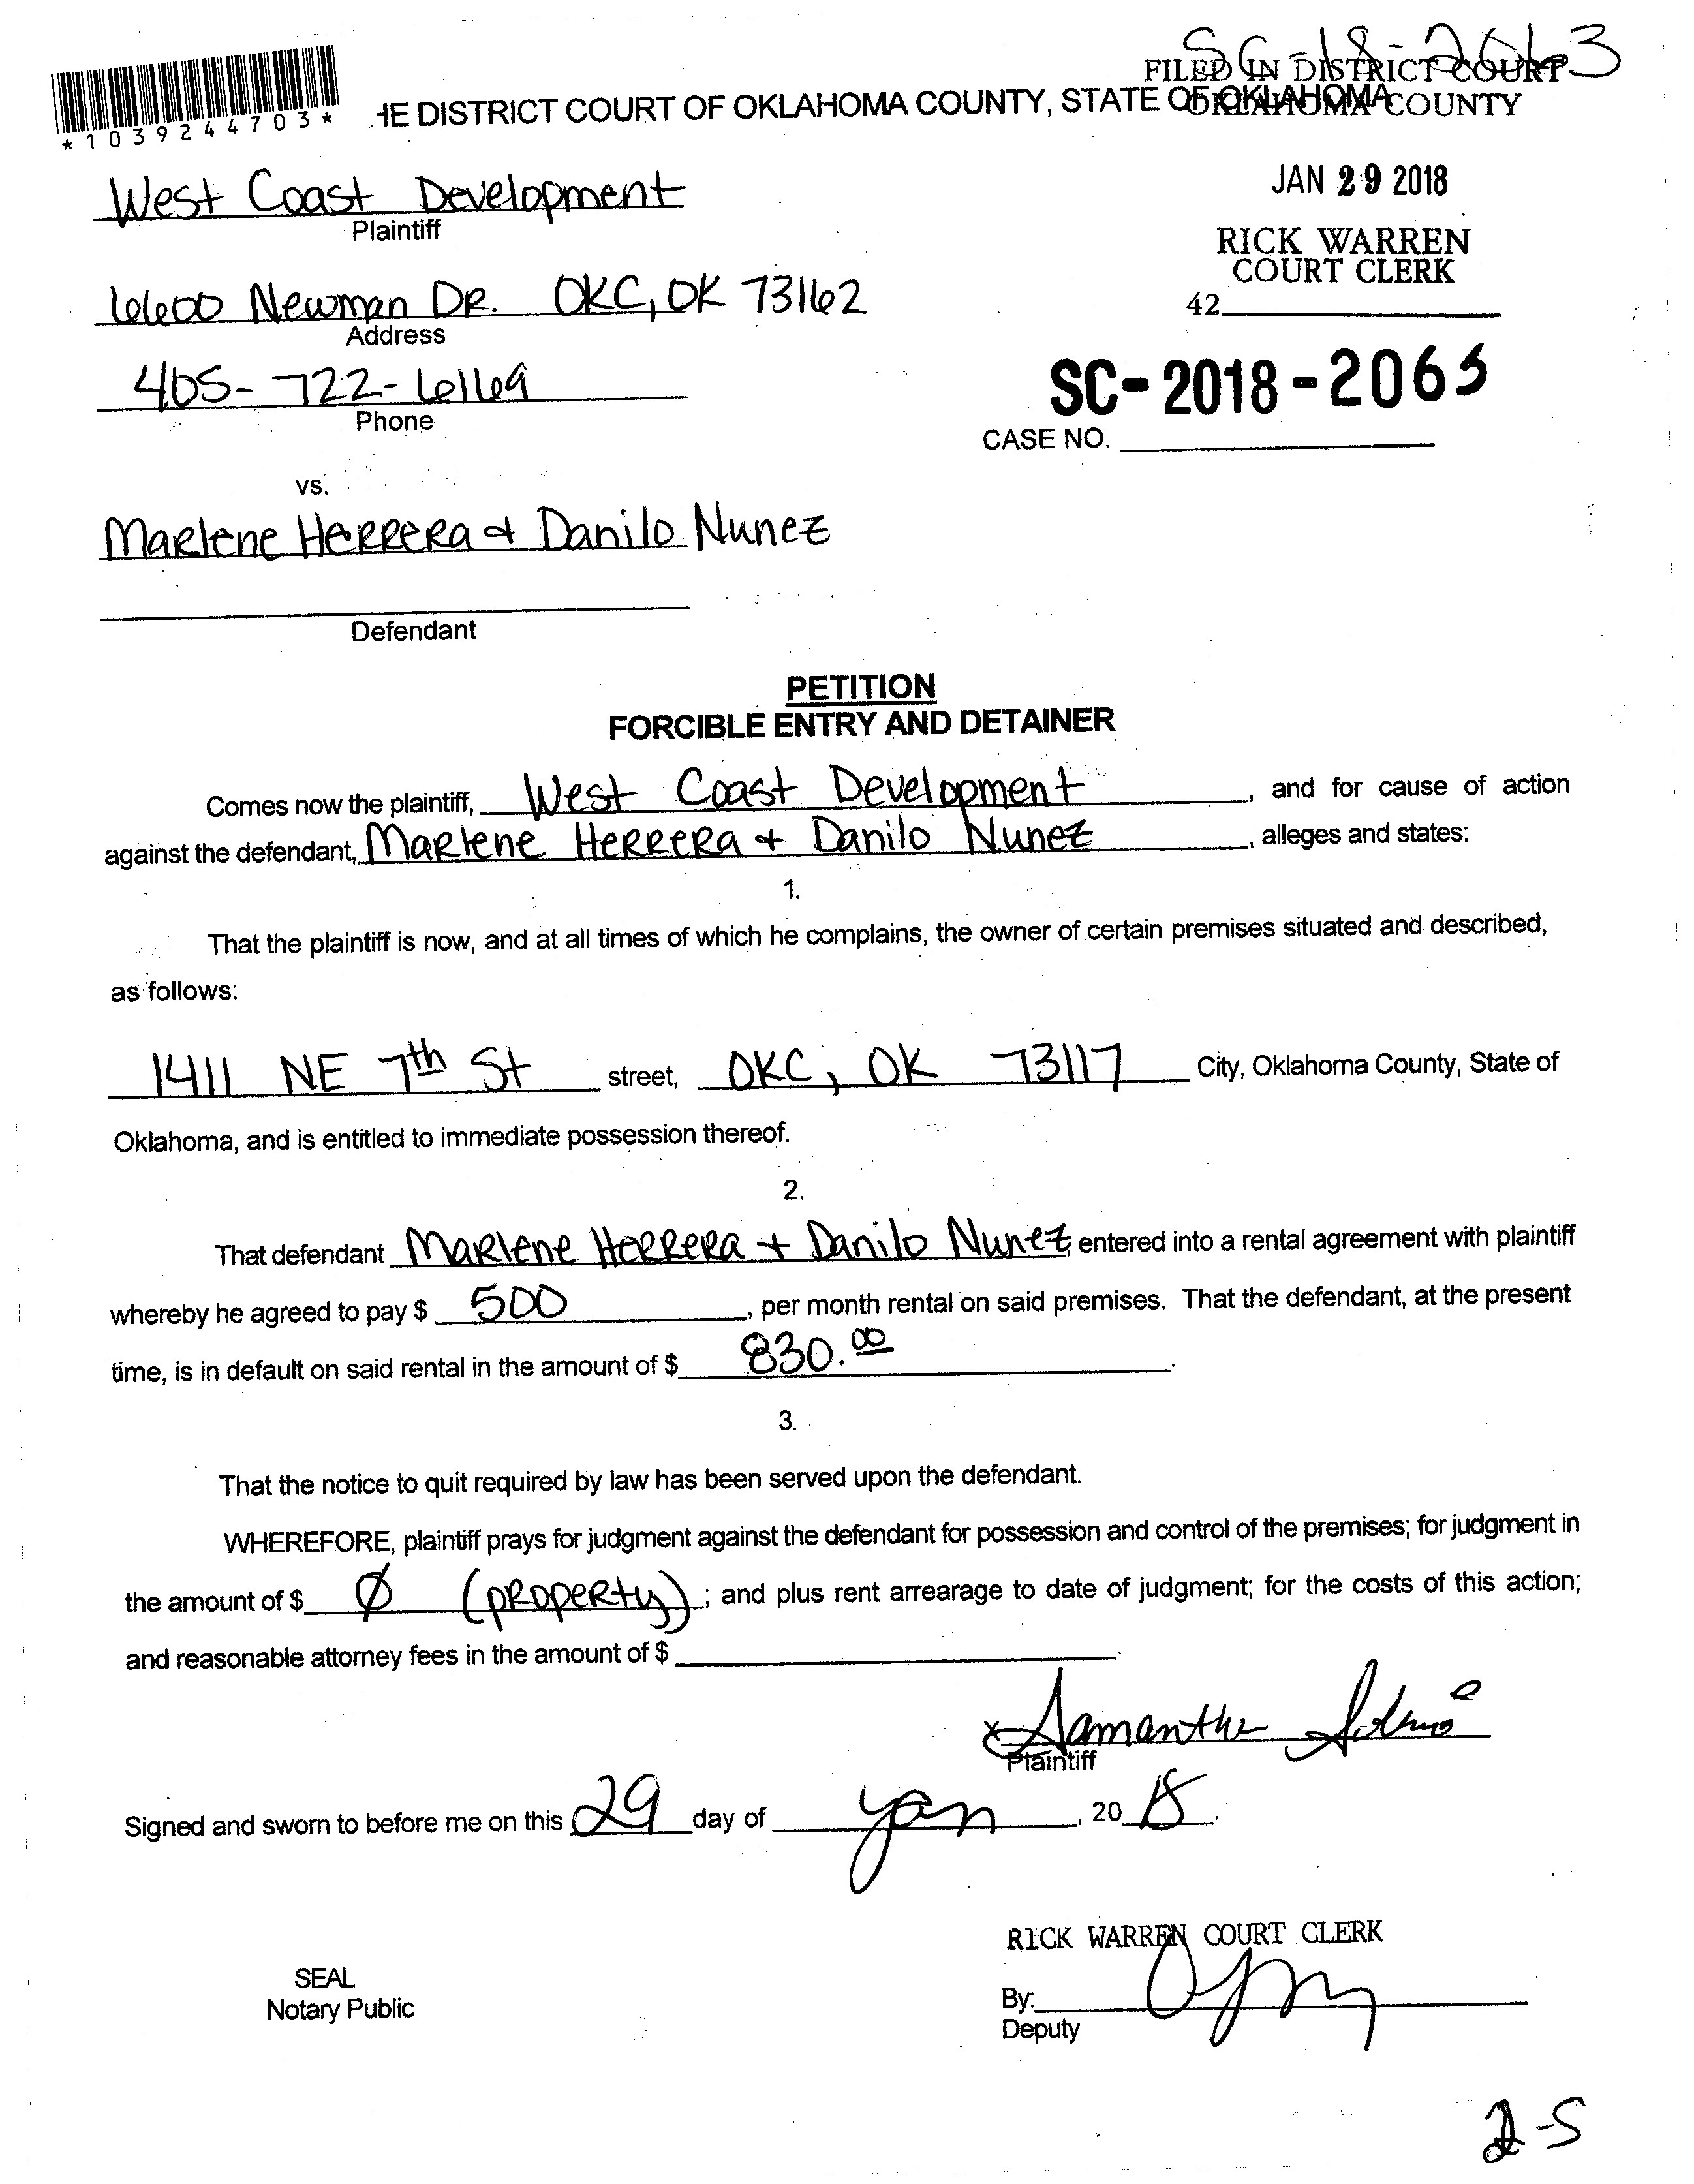 SC-18-2063
FILED IN DISTRICT COURT
OKLAHOMA COUNTY
*1039244703*
HE DISTRICT COURT OF OKLAHOMA COUNTY, STATE OF OKLAHOMA
JAN 29 2018
West Coast Development
Plaintiff
RICK WARREN
COURT CLERK
6600 Newman DR. OKC, OK 73162
Address
42
405-722-6169
Phone
SC-2018-2063
CASE NO.
vs.
Marlene Herrera & Danilo Nunez
Defendant
PETITION
FORCIBLE ENTRY AND DETAINER
Comes now the plaintiff, West Coast Development, and for cause of action
against the defendant, Marlene Herrera + Danilo Nunez, alleges and states:
1.
That the plaintiff is now, and at all times of which he complains, the owner of certain premises situated and described,
as follows:
1411 NE 7th St street, OKC, OK 73117 City, Oklahoma County, State of
Oklahoma, and is entitled to immediate possession thereof.
2.
That defendant Marlene Herrera + Danilo Nunez, entered into a rental agreement with plaintiff
whereby he agreed to pay $ 500, per month rental on said premises. That the defendant, at the present
time, is in default on said rental in the amount of $ 830.00.
3.
That the notice to quit required by law has been served upon the defendant.
WHEREFORE, plaintiff prays for judgment against the defendant for possession and control of the premises; for judgment in
the amount of $ Ø (property); and plus rent arrearage to date of judgment; for the costs of this action;
and reasonable attorney fees in the amount of $ .
x Samantha
Plaintiff
Signed and sworn to before me on this 29 day of Jan, 2018.
RICK WARREN COURT CLERK
SEAL
Notary Public
By:
Deputy
2-5